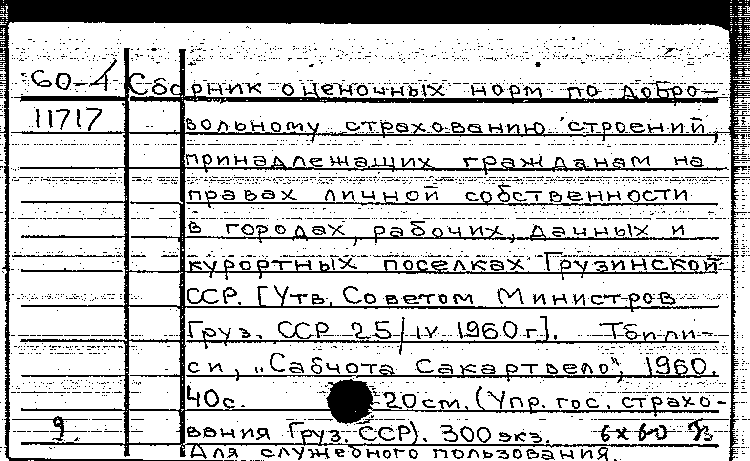 60-4 Сборник оценочных норм по добро-
11717 вольному страхованию строений,
принадлежащих гражданам на
правах личной собственности
в городах, рабочих, дачных и
курортных поселках Грузинской
ССР. [Утв. Советом Министров
Груз. ССР 25/IV 1960 г]. Тбили-
си, "Сабчота Сакартвело", 1960.
40с. 20см. (Упр. гос. страхо-
9. вания Груз. ССР). 300 экз. 6х60
Для служебного пользования.